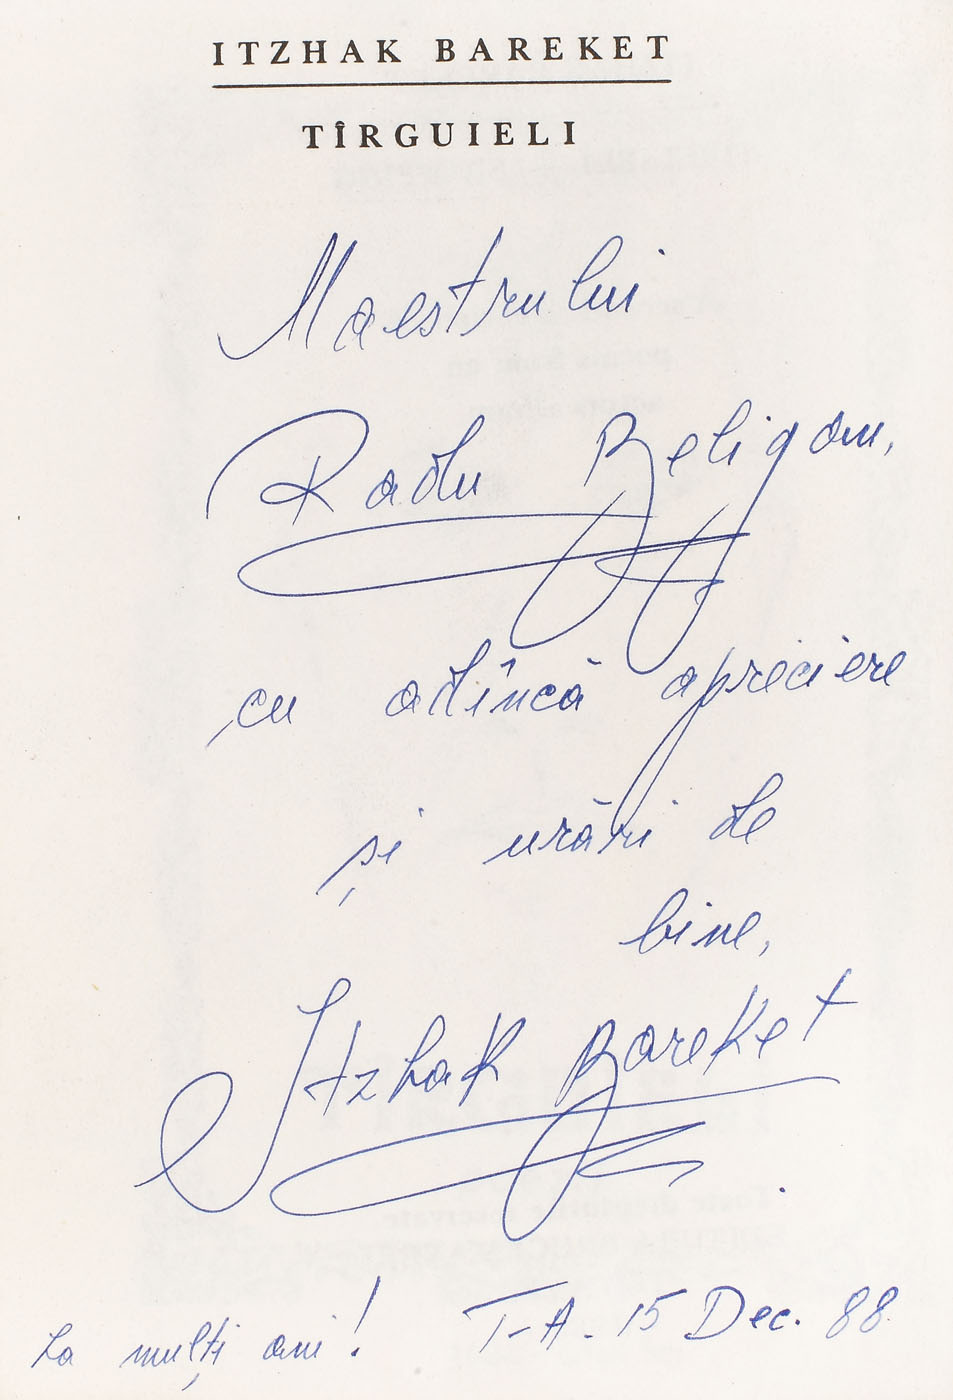 ITZHAK BAREKET
TÎRGUIELI
Maestrului
Radu Beligan,
cu adîncă apreciere
și urări de
bine,
Itzhak Bareket
La mulți ani! T-A. 15 Dec. 88